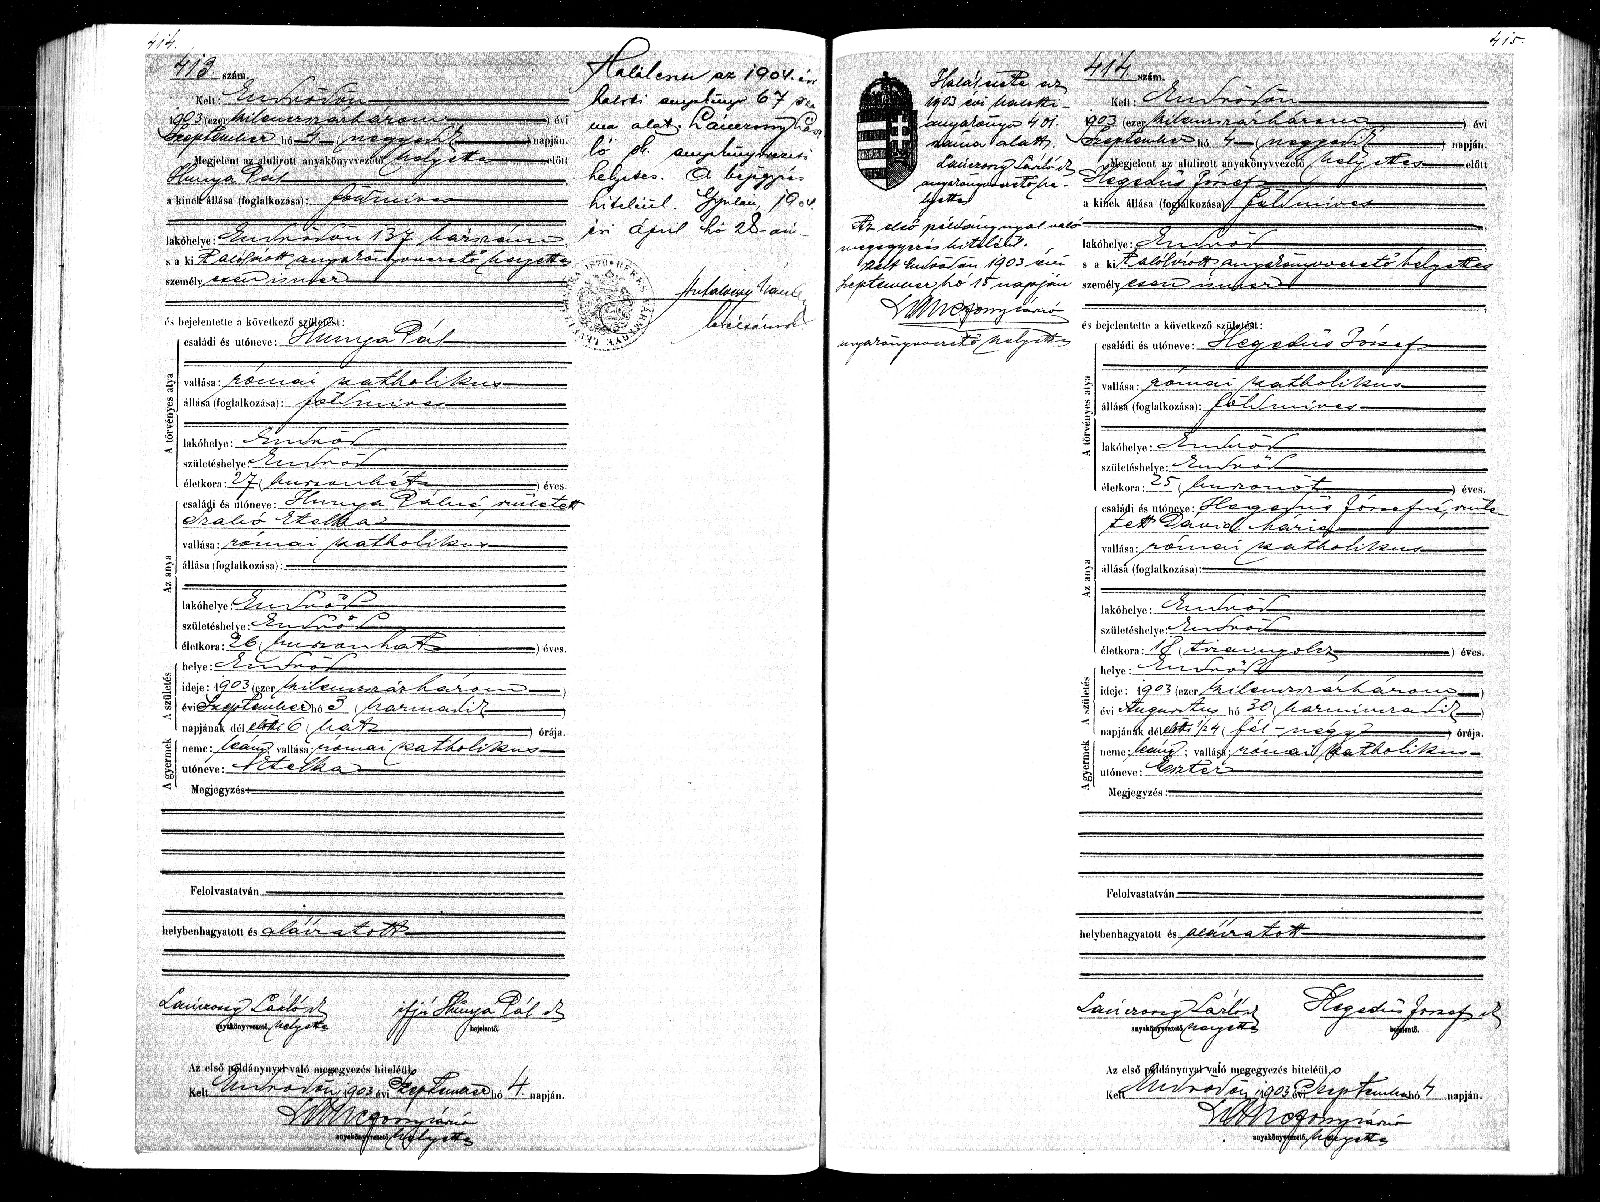 414.
413 szám.
Kelt: Endrődön
1903 (ezer kilencszázhárom) évi
Szeptember hó 4 (negyedik) napján.
Megjelent az alulirott anyakönyvvezető helyettes előtt
Hunya Pál
a kinek állása (foglalkozása): földmives
lakóhelye: Endrődön 137 házszám
s a kit alólirott anyakönyvvezető helyettes
személyesen ismer
és bejelentette a következő születést:
A törvényes atya
családi és utóneve: Hunya Pál
vallása: római katholikus
állása (foglalkozása): földmives
lakóhelye: Endrőd
születéshelye: Endrőd
életkora: 27 (huszonhét) éves.
Az anya
családi és utóneve: Hunya Pálné, született
Szabó Etelka
vallása: római katholikus
állása (foglalkozása):
lakóhelye: Endrőd
születéshelye: Endrőd
életkora: 26 (huszonhat) éves.
A születés
helye: Endrőd
ideje: 1903 (ezer kilencszázhárom)
évi Szeptember hó 3 (harmadik)
napjának dél előtti 6 (hat) órája.
A gyermek
neme: leány; vallása: római katholikus
utóneve: Etelka
Megjegyzés:
Felolvastatván
helybenhagyatott és aláíratott
Lánczony László ifjú Hunya Pál
anyakönyvvezető helyettes bejelentő.
Az első példánynyal való megegyezés hiteléül.
Kelt Endrődön 1903 évi Szeptember hó 4. napján.
anyakönyvvezető helyettes
az 1904. évi
halotti anyakönyv 67 szá
ma alatt. Lánczony Lász
ló sk. anyakönyvvezető
helyettes. A bejegyzés
hiteléül. Gyulán, 1904.
évi április hó 28-án
415.
Halálesete az
1903 évi halotti
anyakönyv 401
száma alatt.
Lánczony László sk
anyakönyvvezető he-
lyettes
Az első példánynyal való
megegyezés hiteléül.
Kelt Endrődön 1903 évi
Szeptember hó 15 napján
anyakönyvvezető helyettes
414 szám.
Kelt: Endrődön
1903 (ezer kilencszázhárom) évi
Szeptember hó 4 (negyedik) napján.
Megjelent az alulirott anyakönyvvezető helyettes előtt
Hegedüs József
a kinek állása (foglalkozása): földmives
lakóhelye: Endrőd
s a kit alólirott anyakönyvvezető helyettes
személyesen ismer
és bejelentette a következő születést:
A törvényes atya
családi és utóneve: Hegedüs József
vallása: római katholikus
állása (foglalkozása): földmives
lakóhelye: Endrőd
születéshelye: Endrőd
életkora: 25 (huszonöt) éves.
Az anya
családi és utóneve: Hegedüs Józsefné, szüle-
tett Dávid Mária
vallása: római katholikus
állása (foglalkozása):
lakóhelye: Endrőd
születéshelye: Endrőd
életkora: 18 (tizennyolcz) éves.
A születés
helye: Endrőd
ideje: 1903 (ezer kilencszázhárom)
évi Augusztus hó 30 (harminczadik)
napjának dél előtti 1/24 (fél-négy) órája.
A gyermek
neme: leány; vallása: római katholikus
utóneve: Eszter
Megjegyzés:
Felolvastatván
helybenhagyatott és aláíratott
Lánczony László Hegedüs József
anyakönyvvezető helyettes bejelentő.
Az első példánynyal való megegyezés hiteléül.
Kelt Endrődön 1903 évi Szeptember hó 4 napján.
anyakönyvvezető helyettes